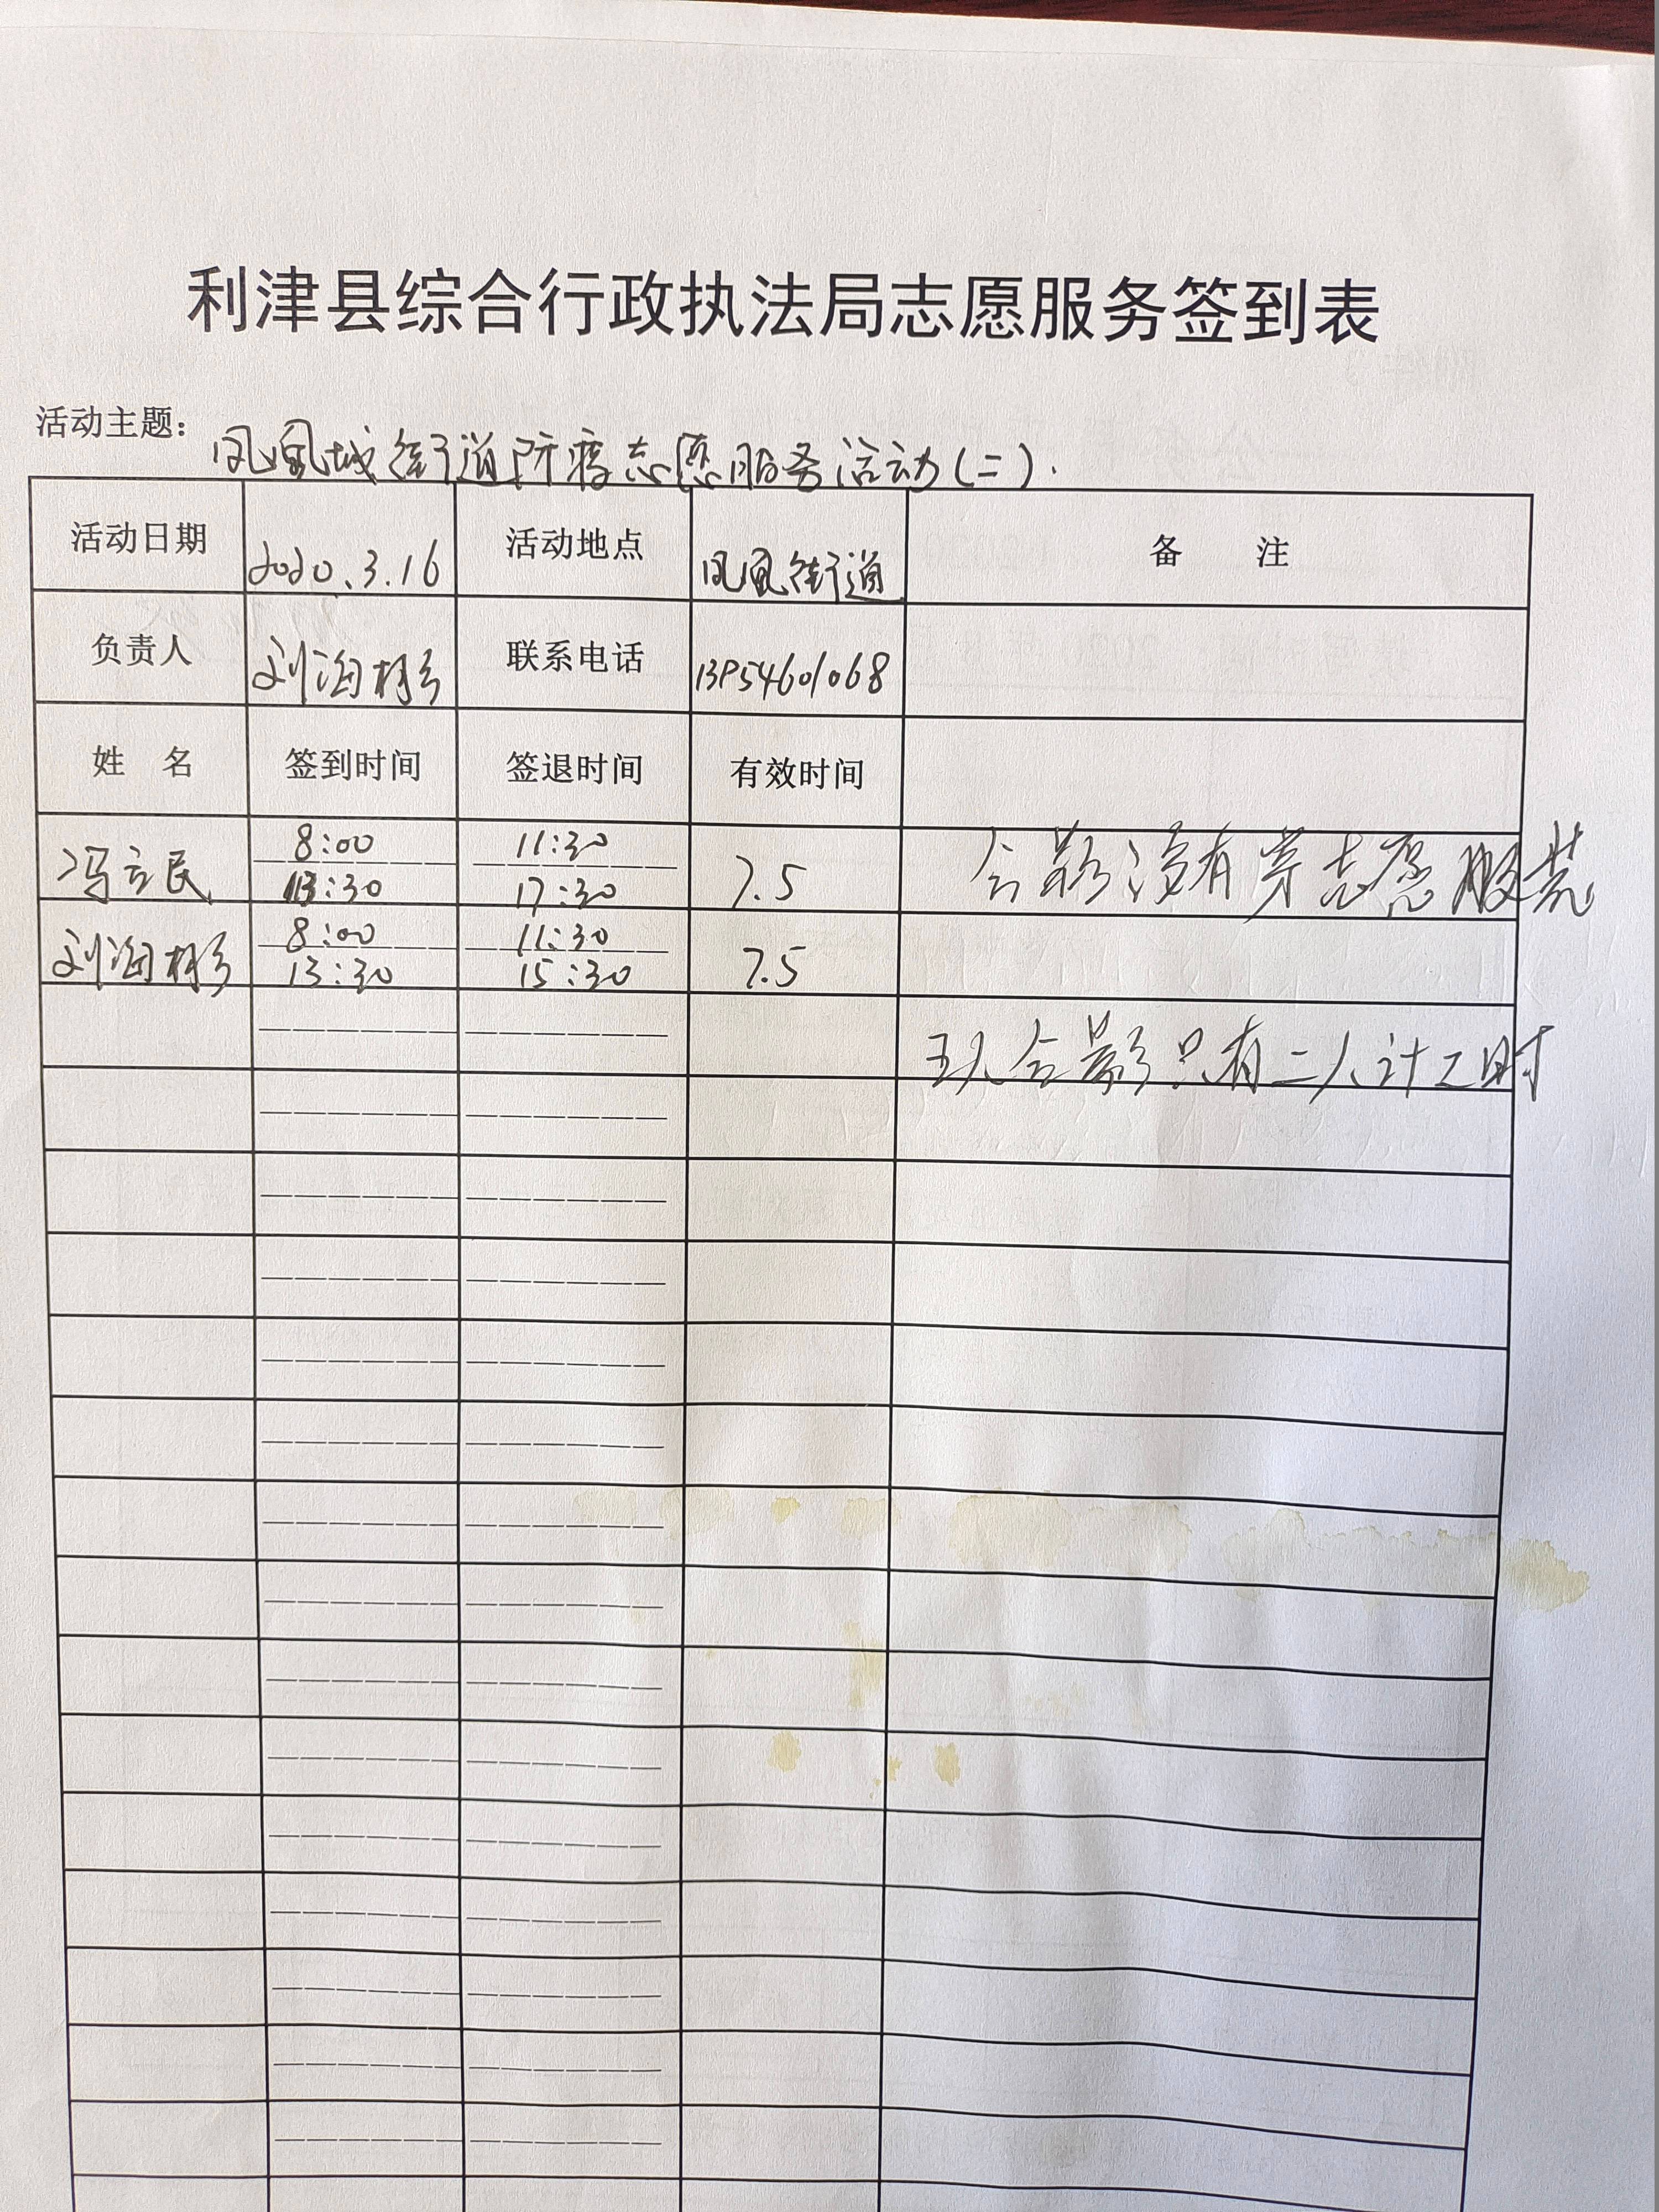 利津县综合行政执法局志愿服务签到表
活动主题：凤凰城街道防疫志愿服务活动(二).
活动日期 2020.3.16 活动地点 凤凰街道 备 注
负责人 刘海彬 联系电话
姓 名 签到时间 签退时间 有效时间
冯立民 8:00 11:30 7.5 合影没有穿志愿服装
13:30 17:30
刘海彬 8:00 11:30 7.5
13:30 15:30
五人合影只有二人计工时